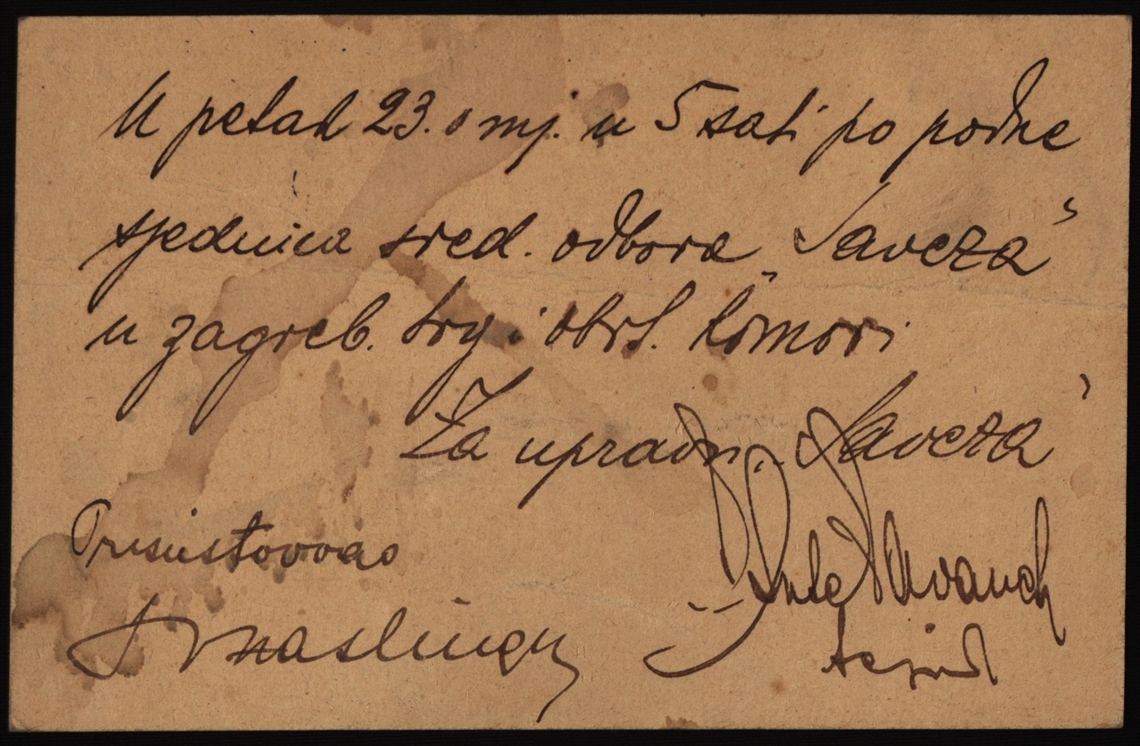 U petak 23. o mj. u 5 sati po podne
sjednica sred. odbora „Saveza“
u zagreb. trg i obrt. komori
Za upravu „Saveza“
Prisustvovao
Ante